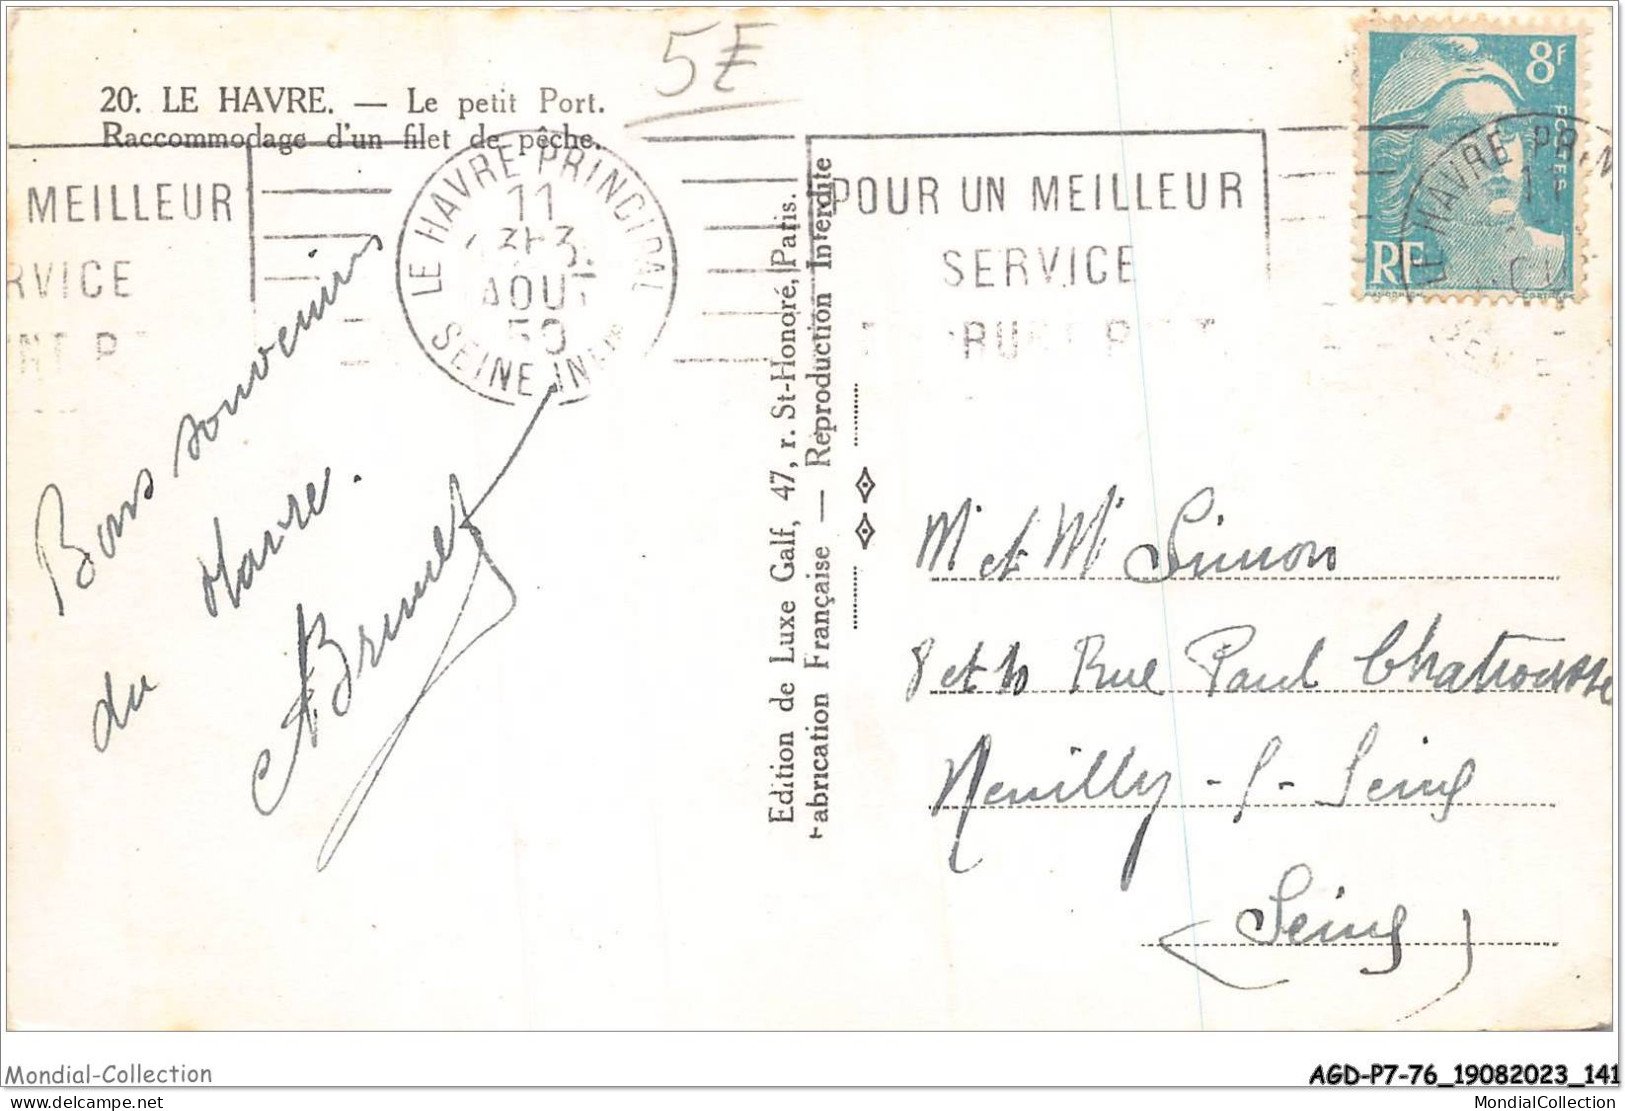 20. LE HAVRE. — Le petit Port.
Raccommodage d'un filet de pêche.
5E
MEILLEUR
RVICE
LE HAVRE PRINCIPAL
11
AOUT
50
SEINE INFRE
POUR UN MEILLEUR
SERVICE
8F
POSTES
RF
Bons souvenirs
du Havre.
ABrunet
Edition de Luxe Galf, 47, r. St-Honoré, Paris.
Fabrication Française — Reproduction Interdite
Mr et Me Simon
8 et 10 Rue Paul Chatrousse
Neuilly-s-Seine
(Seine)
Mondial-Collection
AGD-P7-76_19082023_141
delcampe.net
MondialCollection